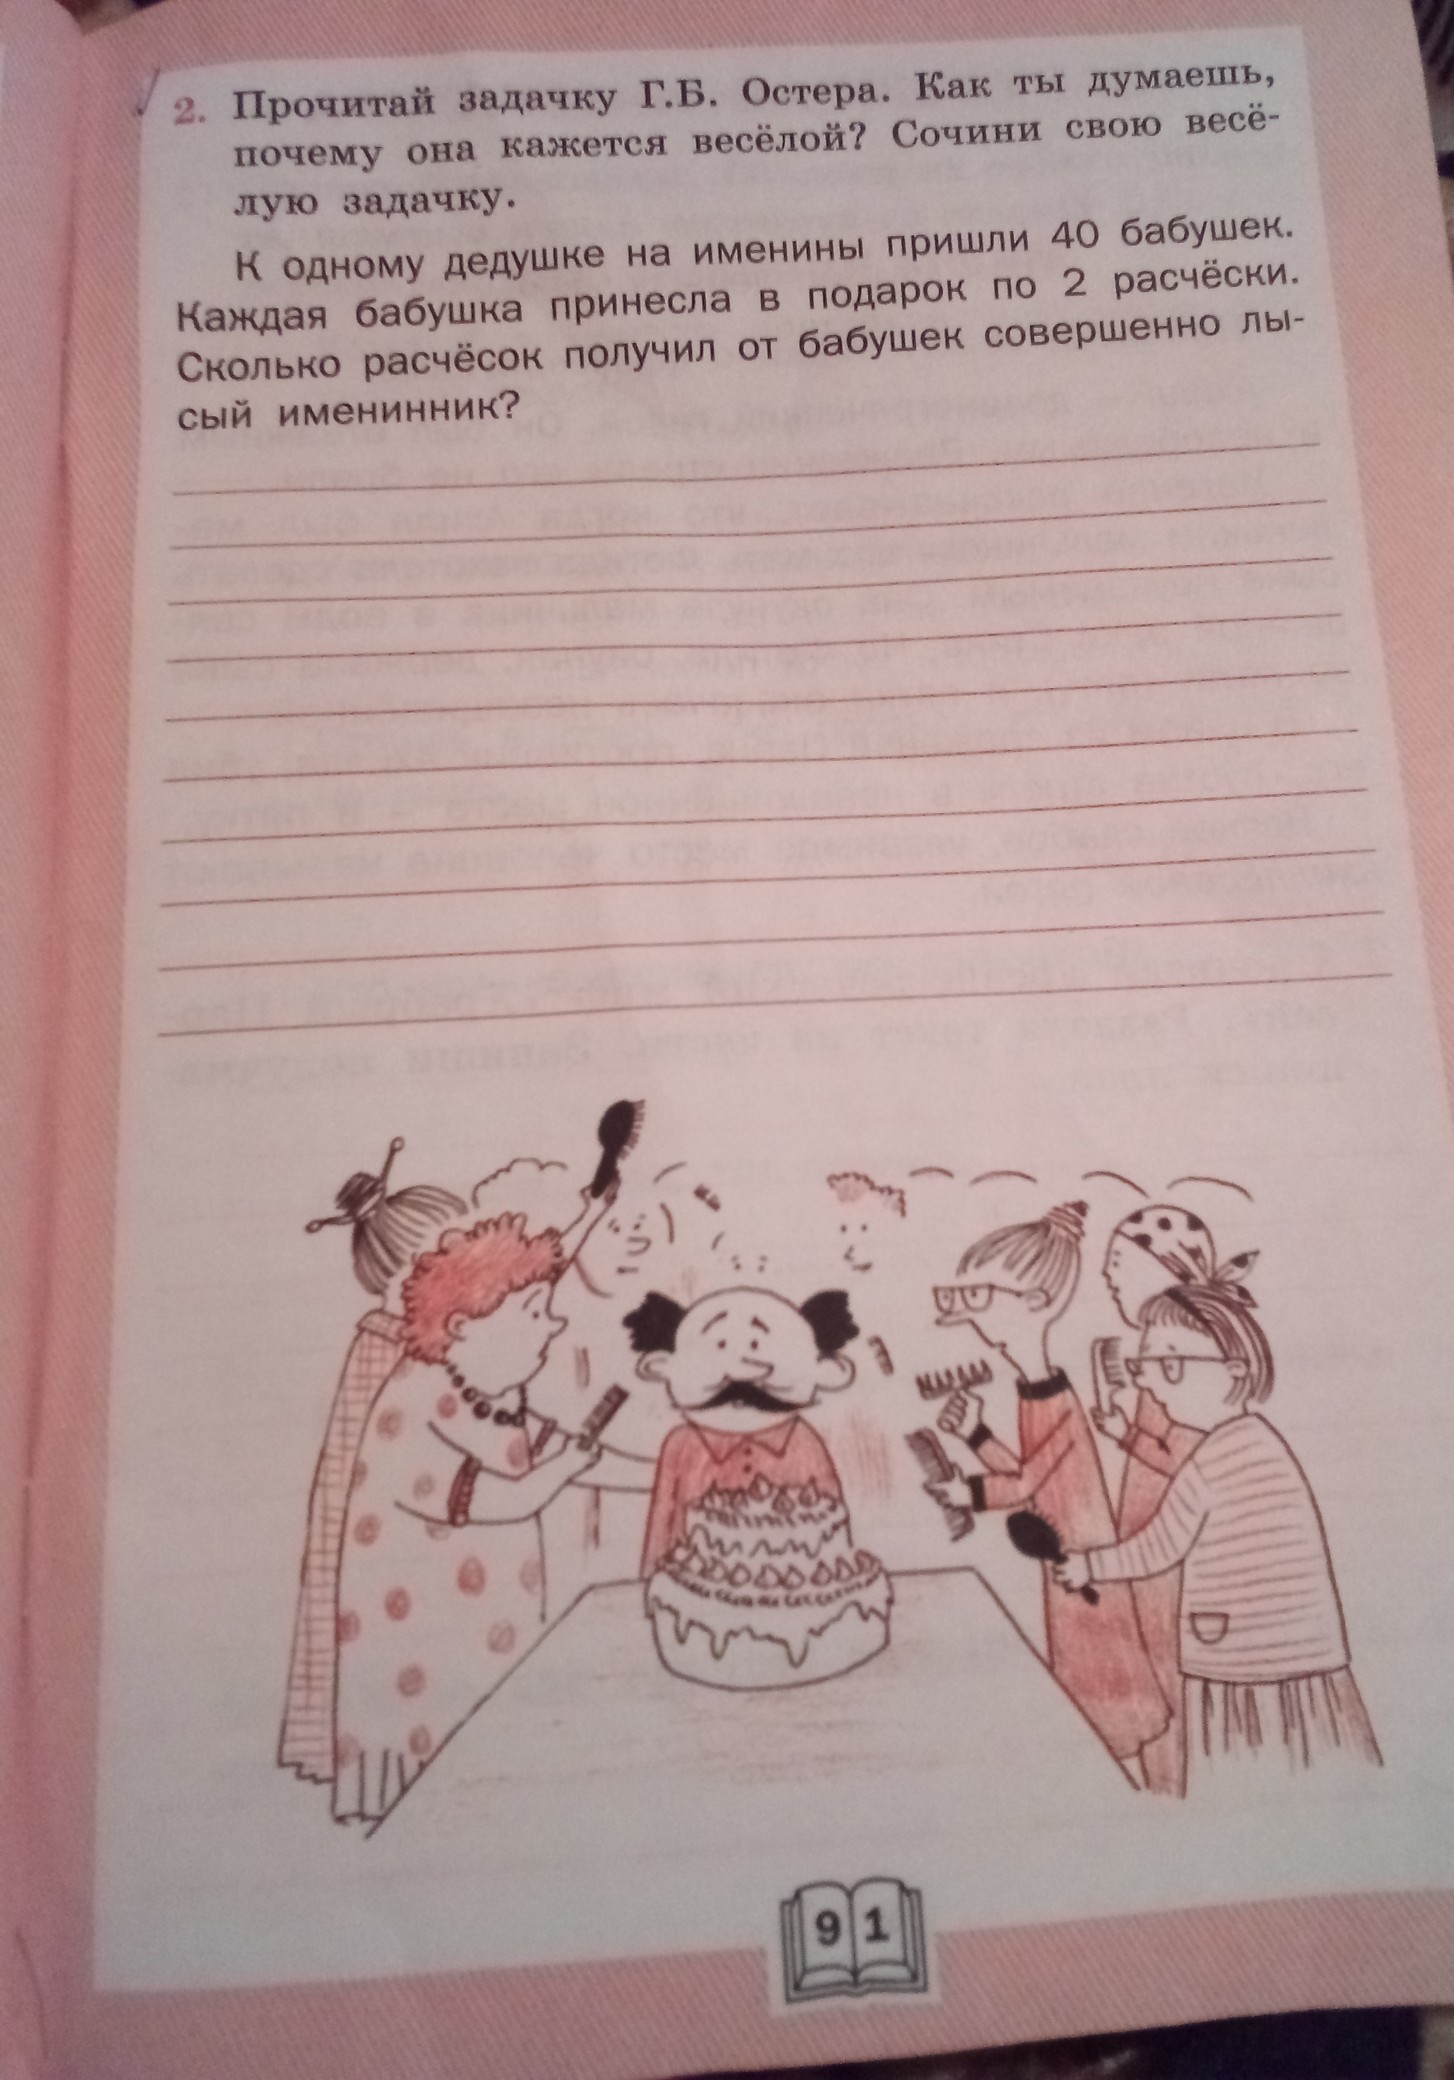 2. Прочитай задачку Г.Б. Остера. Как ты думаешь,
почему она кажется весёлой? Сочини свою весё-
лую задачку.
К одному дедушке на именины пришли 40 бабушек.
Каждая бабушка принесла в подарок по 2 расчёски.
Сколько расчёсок получил от бабушек совершенно лы-
сый именинник?
91